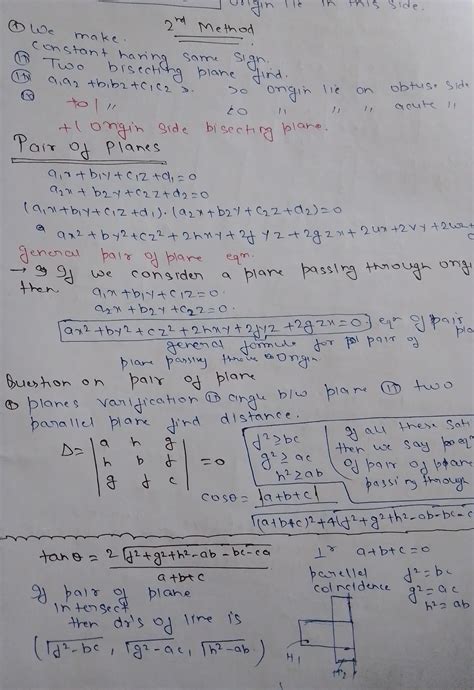 origin lie in this side.
2nd Method
① We make
constant having same sign.
② Two bisecting plane find.
③ a1a2 + b1b2 + c1c2 >0 origin lie on obtuse side
④ to 1 " <0 " " " acute "
+1 origin side bisecting plane.
Pair of Planes
a1x + b1y + c1z + d1 = 0
a2x + b2y + c2z + d2 = 0
(a1x + b1y + c1z + d1) . (a2x + b2y + c2z + d2) = 0
ax² + by² + cz² + 2hxy + 2fyz + 2gzx + 2ux + 2vy + 2wz +
general pair of plane eqn.
→ If we consider a plane passing through origi
then a1x + b1y + c1z = 0
a2x + b2y + c2z = 0
ax² + by² + cz² + 2hxy + 2fyz + 2gzx = 0 eqn of pair
general formula for pair of
plane passing throue origin
Question on pair of plane
① planes varification ② angle b/w plane ③ two
parallel plane find distance.
Δ = | a h g |
| h b f | = 0
| g f c |
f² ≥ bc
g² ≥ ac
h² ≥ ab
If all these sati
then we say
of pair of plane
passing through
cosθ = |a+b+c|
√(a+b+c)² + 4(f²+g²+h²-ab-bc-c
tanθ = 2√f²+g²+h²-ab-bc-ca
a+b+c
⊥r a+b+c=0
parallel f²=bc
coincidence g²=ac
h²=ab
If pair of plane
intersect
then dr's of line is
(√f²-bc , √g²-ac, √h²-ab)
H1
H2